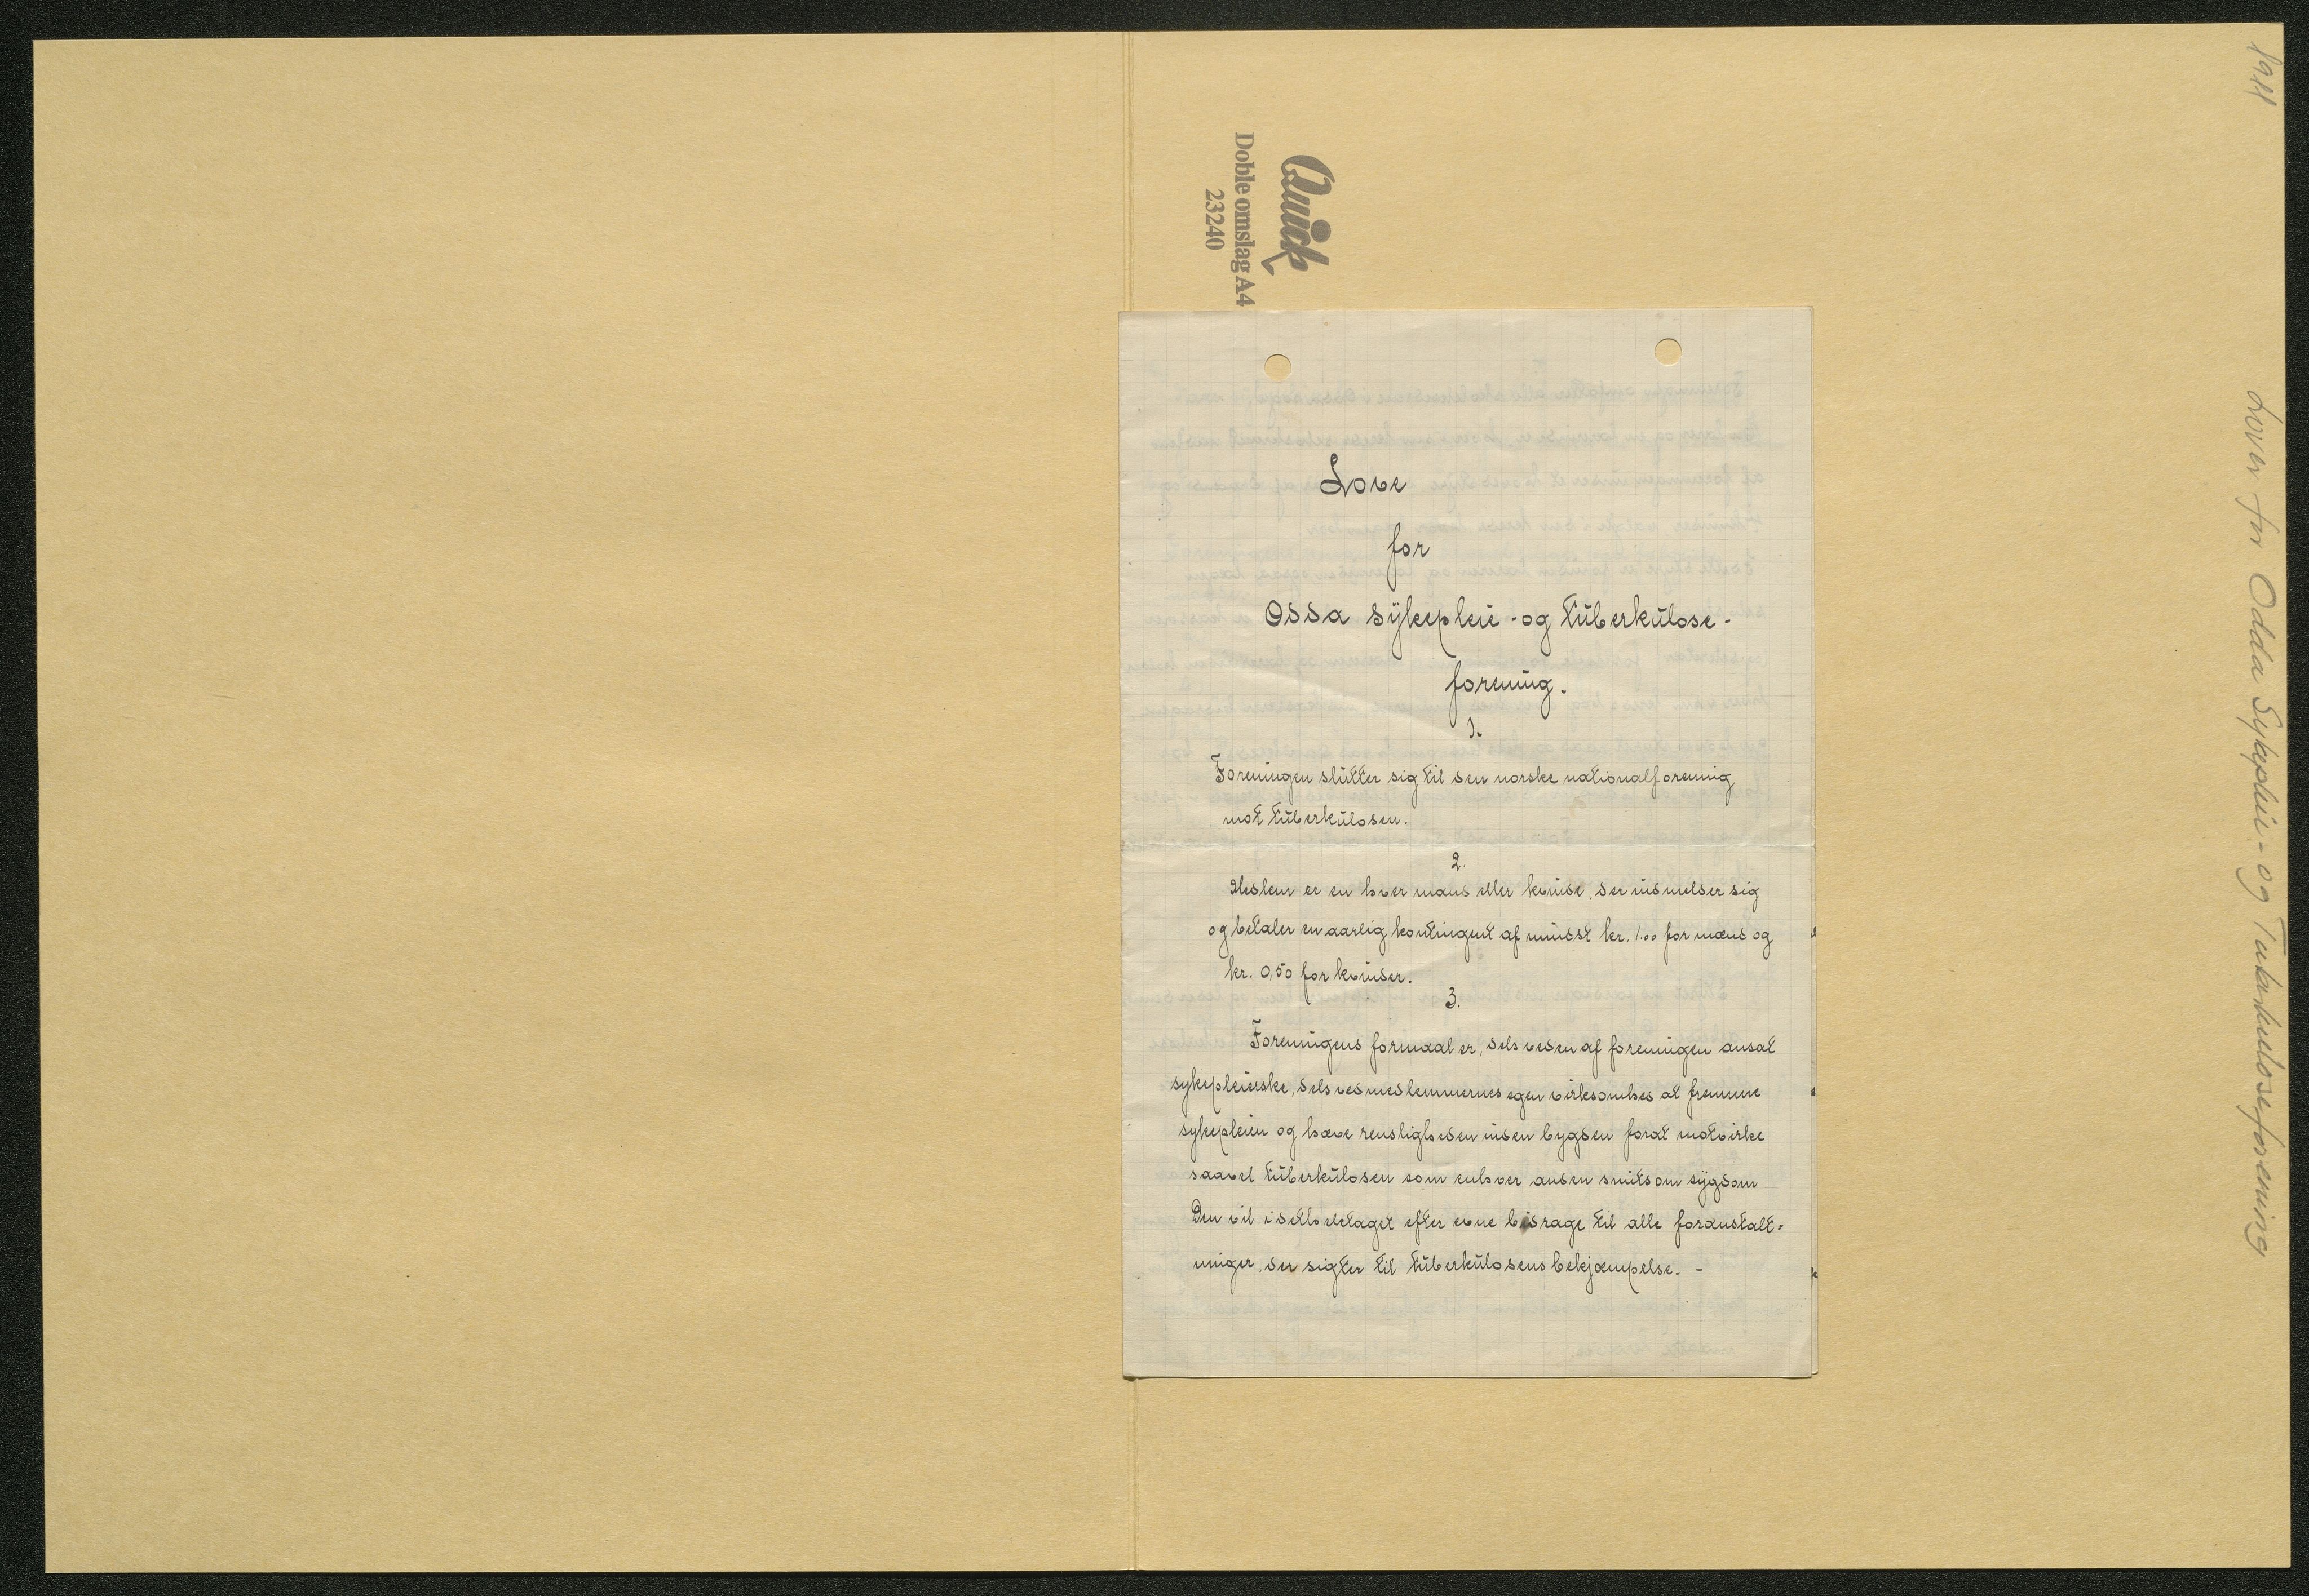 1911
Lover for Odda Sykepleie- og Tuberkuloseforening
Quick
Doble omslag A4
23240
Love
for
Odda sykepleie - og tuberkulose-
forening.
1.
Foreningen slutter sig til den norske nationalforening
mot tuberkulosen.
2.
Medlem er en hver mand eller kvinde, der indmelder sig
og betaler en aarlig kontingent af mindst kr. 1.00 for mænd og
kr. 0,50 for kvinder.
3.
Foreningens formaal er, dels veden af foreningen ansat
sykepleierske, dels ved medlemmernes egen virksomhed at fremme
sykepleien og hæve rensligheden inden bygden forat motvirke
saavel tuberkulosen som enhver anden smitsom sygdom
Den vil i det hele taget efter evne bidrage til alle foranstalt-
ninger der sigter til tuberkulosens bekjæmpelse. -